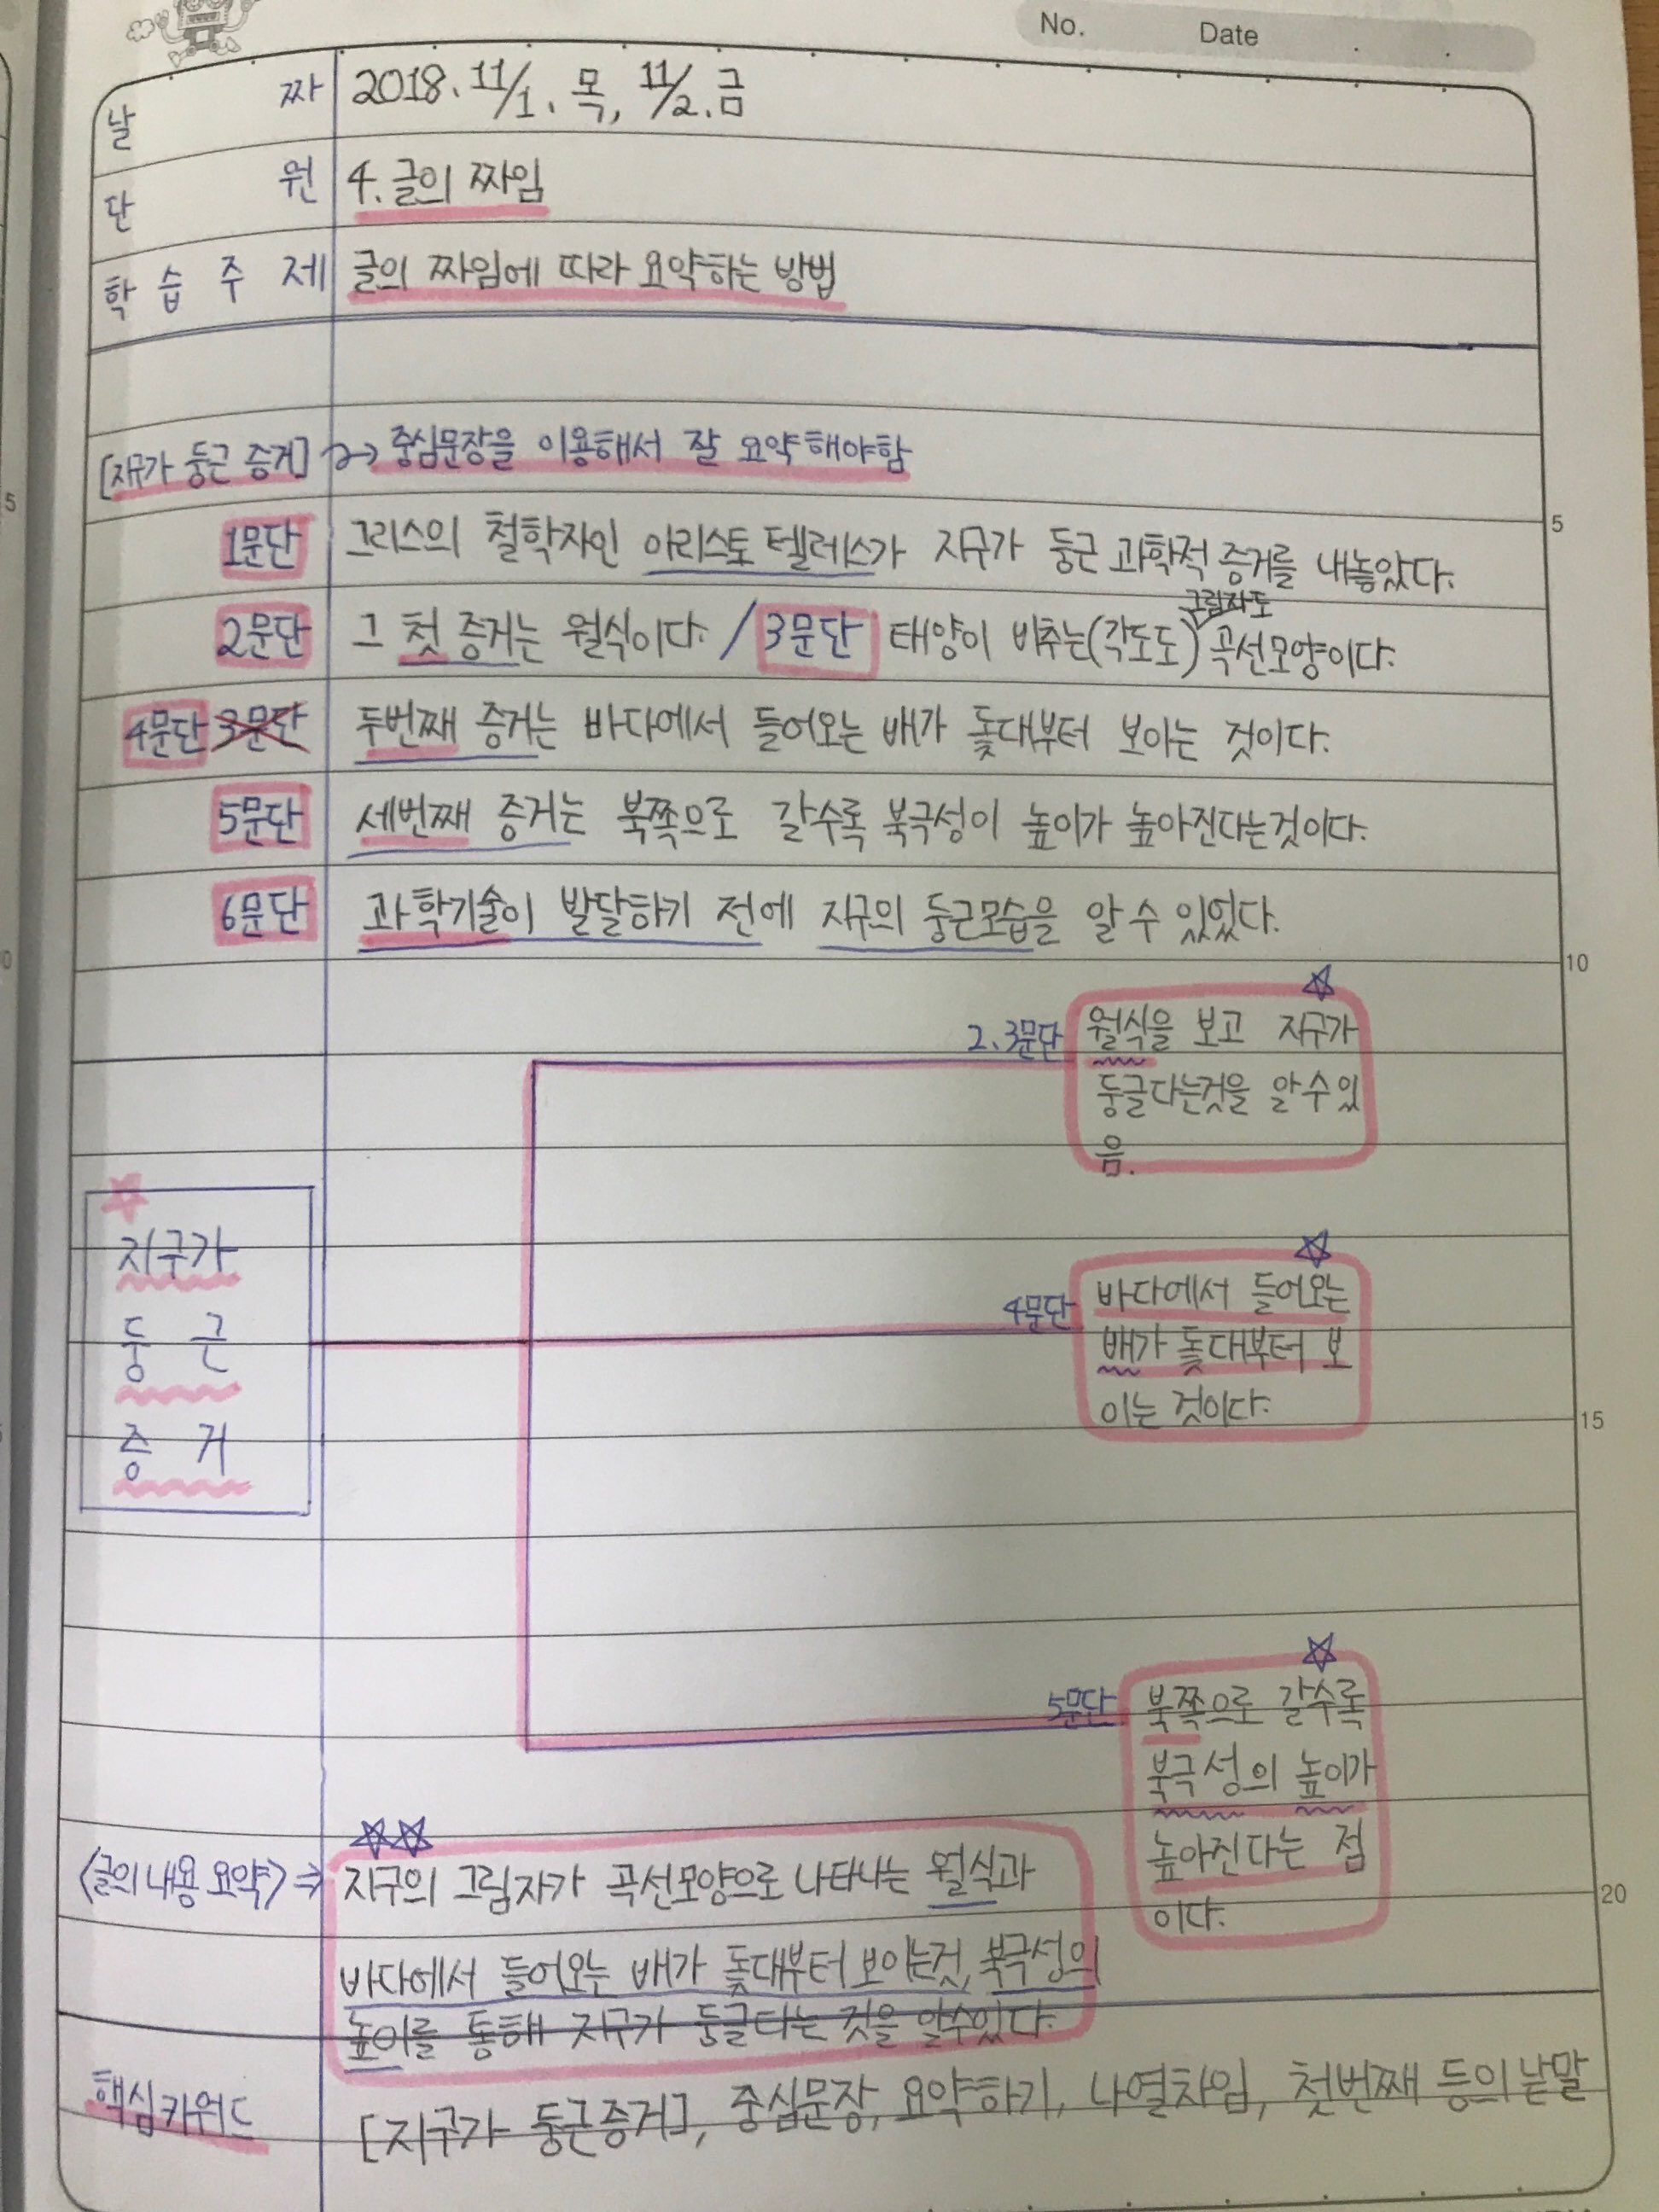 No. Date
날짜 2018. 11/1. 목, 11/2. 금
단원 4. 글의 짜임
학습주제 글의 짜임에 따라 요약하는 방법
[지구가 둥근 증거] → 중심문장을 이용해서 잘 요약해야함
1문단 그리스의 철학자인 아리스토텔레스가 지구가 둥근 과학적 증거를 내놓았다.
5
그림자도
2문단 그 첫 증거는 월식이다. / 3문단 태양이 비추는(각도도) 곡선모양이다.
4문단 3문단 두번째 증거는 바다에서 들어오는 배가 돛대부터 보이는 것이다.
5문단 세번째 증거는 북쪽으로 갈수록 북극성이 높이가 높아진다는것이다.
6문단 과학기술이 발달하기 전에 지구의 둥근모습을 알 수 있었다.
10
2.3문단 월식을 보고 지구가
둥글다는것을 알수있
음.
지구가
둥 근
증 거
4문단 바다에서 들어오는
배가 돛대부터 보
이는 것이다.
15
5문단 북쪽으로 갈수록
북극성의 높이가
높아진다는 점
이다.
<글의 내용 요약> ⇒ 지구의 그림자가 곡선모양으로 나타나는 월식과
20
바다에서 들어오는 배가 돛대부터 보이는것, 북극성의
높이를 통해 지구가 둥글다는 것을 알수있다.
핵심키워드 [지구가 둥근증거], 중심문장, 요약하기, 나열차임, 첫번째 등의 낱말